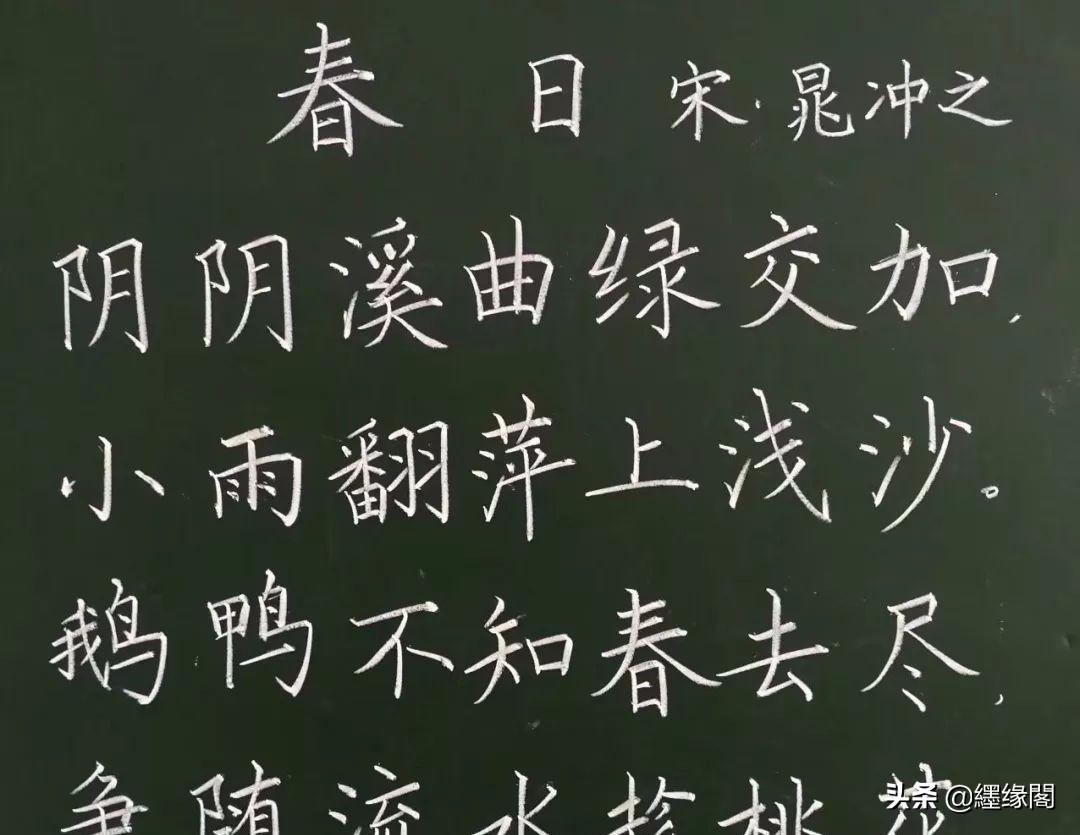 春日 宋·晁冲之
阴阴溪曲绿交加，
小雨翻萍上浅沙。
鹅鸭不知春去尽，
争随流水趁桃花
头条 @纆缘閣